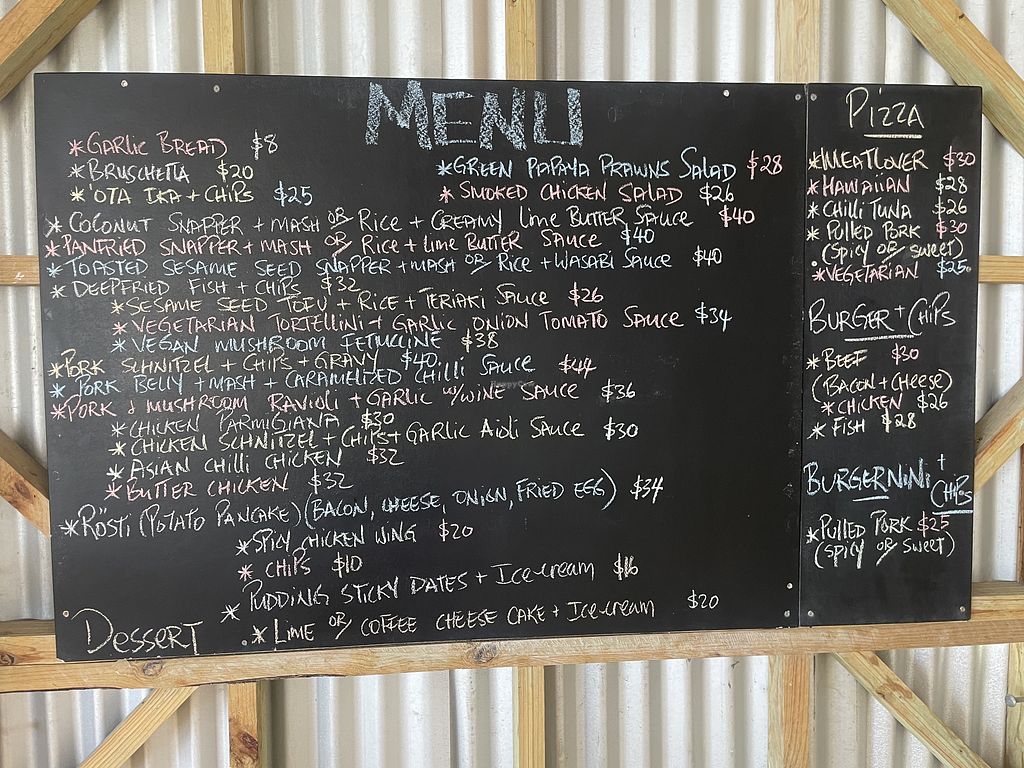 MENU
*GARLIC BREAD $8
*BRUSCHETTA $20
*'OTA IKA + CHIPS $25
*GREEN PAPAYA PRAWNS SALAD $28
*SMOKED CHICKEN SALAD $26
*COCONUT SNAPPER + MASH OR RICE + CREAMY LIME BUTTER SAUCE $40
*PANFRIED SNAPPER + MASH OR RICE + LIME BUTTER SAUCE $40
*TOASTED SESAME SEED SNAPPER + MASH OR RICE + WASABI SAUCE $40
*DEEPFRIED FISH + CHIPS $32
*SESAME SEED TOFU + RICE + TERIAKI SAUCE $26
*VEGETARIAN TORTELLINI + GARLIC ONION TOMATO SAUCE $34
*VEGAN MUSHROOM FETUCLINE $38
*PORK SCHNITZEL + CHIPS + GRAVY $40
*PORK BELLY + MASH + CARAMELIZED CHILLI SAUCE $44
*PORK & MUSHROOM RAVIOLI + GARLIC W/WINE SAUCE $36
*CHICKEN PARMIGIANA $30
*CHICKEN SCHNITZEL + CHIPS + GARLIC AIOLI SAUCE $30
*ASIAN CHILLI CHICKEN $32
*BUTTER CHICKEN $32
*RÖSTI (POTATO PANCAKE) (BACON, CHEESE, ONION, FRIED EGG) $34
*SPICY CHICKEN WING $20
*CHIPS $10
Dessert
*PUDDING STICKY DATES + Ice-cream $16
*LIME OR COFFEE CHEESE CAKE + Ice-cream $20
PIZZA
*MEATLOVER $30
*HAWAIIAN $28
*CHILLI TUNA $26
*PULLED PORK $30
(SPICY OR SWEET)
*VEGETARIAN $25
BURGER + CHIPS
*BEEF $30
(BACON + CHEESE)
*CHICKEN $26
*FISH $28
BURGERNINI +
CHIPS
*PULLED PORK $25
(SPICY OR SWEET)